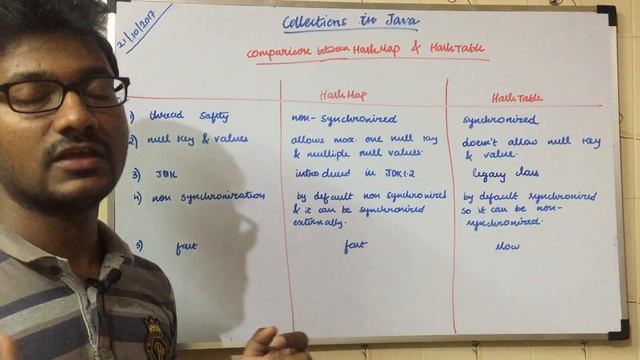 21/10/2017
Collections in Java
Comparison between HashMap & HashTable
HashMap
HashTable
1) thread safety
non-synchronized
synchronized
2) null key & values
allows max. one null key
& multiple null values.
doesn't allow null key
& value.
3) JDK
introduced in JDK1.2
legacy class
4) non synchronization
by default non synchronized
& it can be synchronized
externally.
by default synchronized
so it can be non-
synchronized.
5) fast
fast
slow